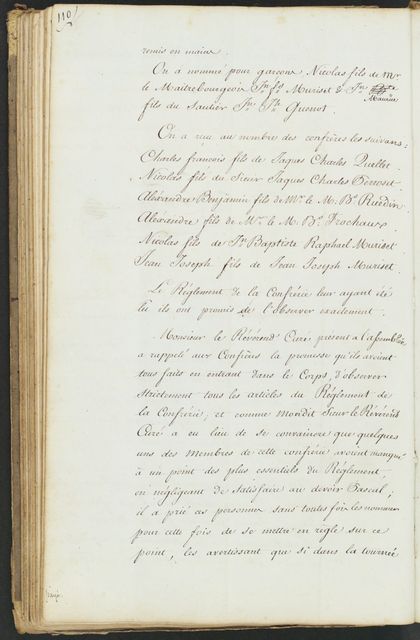 110
remis en mains.
On a nommé pour garçons Nicolas fils de Mr
le Maitrebourgeois Jn. fs. Muriset & Jn.
Maurice
fils du Sautier Jn. Bte. Guenot.
On a reçu au nombre des confrères les suivans:
Charles françois fils de Jaques Charles Quellet
Nicolas fils du Sieur Jaques Charles Perroset
Alexandre Benjamin fils de Mr. le M. Br. Ruedin
Alexandre fils de Mr. le M. Br. Frochaux
Nicolas fils de Jn. Baptiste Raphael Muriset
Jean Joseph fils de Jean Joseph Muriset.
Le Réglement de la Confrérie leur ayant été
lu ils ont promis de l'observer exactement.
Monsieur le Révérend Curé présent à l'assemblée
a rappelé aux Confrères la promesse qu'ils avoient
tous faits en entrant dans le Corps, d'observer
strictement tous les articles du Réglement de
la Confrérie; et comme mondit Sieur le Révérend
Curé a eu lieu de se convaincre que quelques
uns des membres de cette confrérie avoient manqué
à un point des plus essentiels du Réglement,
en négligeant de satisfaire au devoir Pascal;
il a prié ces personnes sans toutes fois les nommer
pour cette fois de se mettre en régle sur ce
point, les avertissant que si dans la tournée